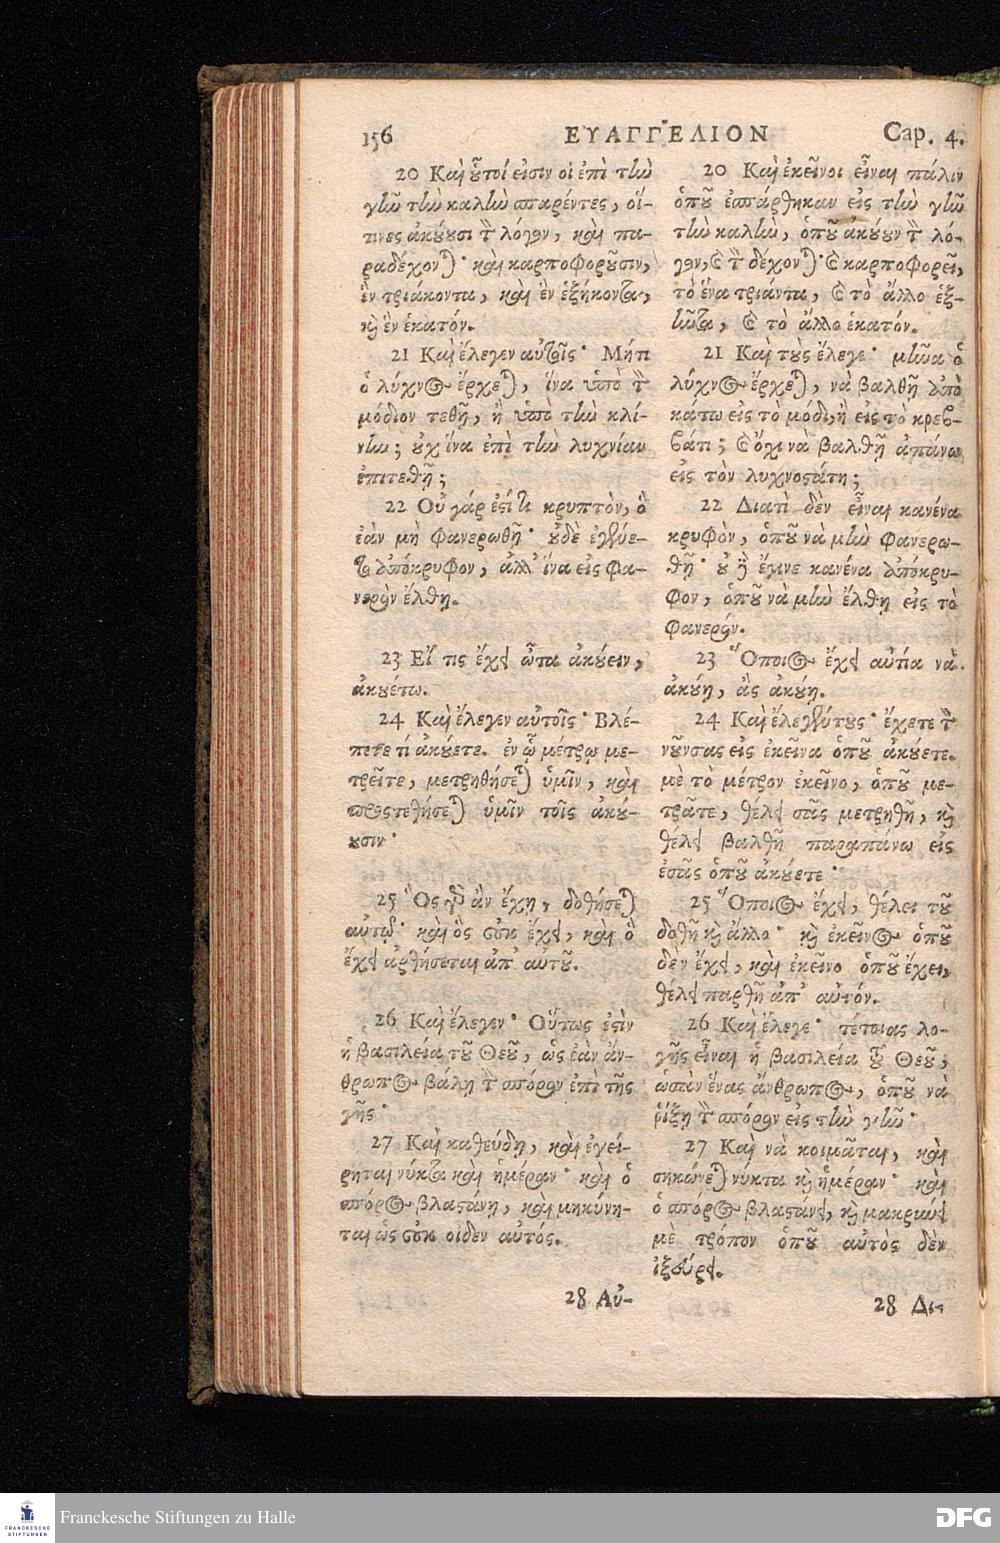 156 ΕΥΑΓΓΕΛΙΟΝ Cap. 4.
20 Καὶ οὗτοί εἰσιν οἱ ἐπὶ τὴν
γῆν τὴν καλὴν σπαρέντες, οἵ-
τινες ἀκούουσι τὸν λόγον, καὶ πα-
ραδέχονται· καὶ καρποφοροῦσιν,
ἓν τριάκοντα, καὶ ἓν ἑξήκοντα,
καὶ ἓν ἑκατόν.
21 Καὶ ἔλεγεν αὐτοῖς· Μήτι
ὁ λύχνος ἔρχεται, ἵνα ὑπὸ τὸν
μόδιον τεθῇ, ἢ ὑπὸ τὴν κλί-
νην; οὐχ ἵνα ἐπὶ τὴν λυχνίαν
ἐπιτεθῇ;
22 Οὐ γάρ ἐστί τι κρυπτὸν, ὃ
ἐὰν μὴ φανερωθῇ· οὐδὲ ἐγένε-
το ἀπόκρυφον, ἀλλ' ἵνα εἰς φα-
νερὸν ἔλθῃ.
23 Εἴ τις ἔχει ὦτα ἀκούειν,
ἀκουέτω.
24 Καὶ ἔλεγεν αὐτοῖς· Βλέ-
πετε τί ἀκούετε. ἐν ᾧ μέτρῳ με-
τρεῖτε, μετρηθήσεται ὑμῖν, καὶ
προστεθήσεται ὑμῖν τοῖς ἀκού-
ουσιν·
25 Ὃς γὰρ ἂν ἔχῃ, δοθήσεται
αὐτῷ· καὶ ὃς οὐκ ἔχει, καὶ ὃ
ἔχει ἀρθήσεται ἀπ' αὐτοῦ.
26 Καὶ ἔλεγεν· Οὕτως ἐστὶν
ἡ βασιλεία τοῦ Θεοῦ, ὡς ἐὰν ἄν-
θρωπος βάλῃ τὸν σπόρον ἐπὶ τῆς
γῆς·
27 Καὶ καθεύδῃ, καὶ ἐγεί-
ρηται νύκτα καὶ ἡμέραν· καὶ ὁ
σπόρος βλαστάνῃ, καὶ μηκύνη-
ται ὡς οὐκ οἶδεν αὐτός.
28 Αὐ-
20 Καὶ ἐκεῖνοι εἶναι πάλιν
ὁποῦ ἐσπάρθηκαν εἰς τὴν γῆν
τὴν καλὴν, ὁποῦ ἀκούουν τὸν λό-
γον, καὶ τὸν δέχονται· καὶ καρποφορεῖ,
τὸ ἕνα τριάντα, καὶ τὸ ἄλλο ἑξ-
ῆντα, καὶ τὸ ἄλλο ἑκατόν.
21 Καὶ τοὺς ἔλεγε· μήνα ὁ
λύχνος ἔρχεται, νὰ βαλθῇ ἀπὸ
κάτω εἰς τὸ μόδι, ἢ εἰς τὸ κρεβ-
βάτι; καὶ ὄχι νὰ βαλθῇ ἀπάνω
εἰς τὸν λυχνοστάτη;
22 Διατὶ δὲν εἶναι κανένα
κρυφὸν, ὁποῦ νὰ μὴν φανερω-
θῇ· οὐδὲ ἔγινε κανένα ἀπόκρυ-
φον, ὁποῦ νὰ μὴν ἔλθῃ εἰς τὸ
φανερόν.
23 Ὅποιος ἔχει αὐτία νὰ
ἀκούῃ, ἂς ἀκούῃ.
24 Καὶ ἔλεγέν τους· ἔχετε τὸν
νοῦνσας εἰς ἐκεῖνα ὁποῦ ἀκούετε.
μὲ τὸ μέτρον ἐκεῖνο, ὁποῦ με-
τρᾶτε, θέλει σᾶς μετρηθῆ, καὶ
θέλει βαλθῆ παραπάνω εἰς
ἐσᾶς ὁποῦ ἀκούετε·
25 Ὅποιος ἔχει, θέλει τοῦ
δοθῆ καὶ ἄλλο· καὶ ἐκεῖνος ὁποῦ
δὲν ἔχει, καὶ ἐκεῖνο ὁποῦ ἔχει,
θέλει παρθῆ ἀπ' αὐτόν.
26 Καὶ ἔλεγε· τέτοιας λο-
γῆς εἶναι ἡ βασιλεία τοῦ Θεοῦ;
ὡσὰν ἕνας ἄνθρωπος, ὁποῦ νὰ
ῥίξῃ τὸν σπόρον εἰς τὴν γῆν·
27 Καὶ νὰ κοιμᾶται, καὶ
σηκώνεται νύκτα καὶ ἡμέραν· καὶ
ὁ σπόρος βλαστάνει, καὶ μακρυαίνει
μὲ τρόπον ὁποῦ αὐτὸς δὲν
ἰξεύρει.
28 Δια-
FRANCKESCHE
STIFTUNGEN
Franckesche Stiftungen zu Halle
DFG